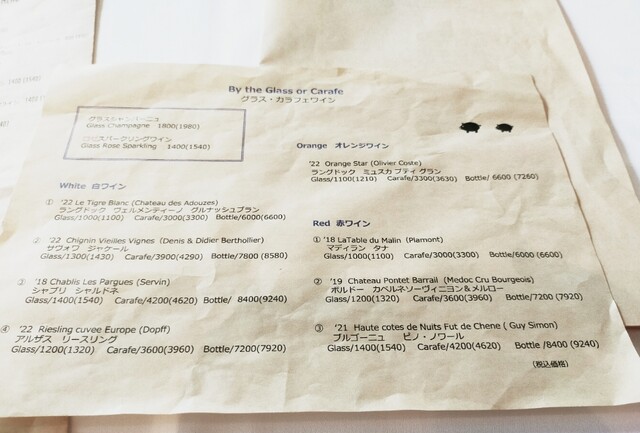 By the Glass or Carafe
グラス・カラフェワイン
グラスシャンパーニュ
Glass Champagne 1800(1980)
スパークリングワイン
Glass Rose Sparkling 1400(1540)
White 白ワイン
① '22 Le Tigre Blanc (Chateau des Adouzes)
ラングドック ヴェルメンティーノ グルナッシュブラン
Glass/1000(1100) Carafe/3000(3300) Bottle/6000(6600)
② '22 Chignin Vieilles Vignes (Denis & Didier Berthollier)
サヴォワ ジャケール
Glass/1300(1430) Carafe/3900(4290) Bottle/7800 (8580)
③ '18 Chablis Les Pargues (Servin)
シャブリ シャルドネ
Glass/1400(1540) Carafe/4200(4620) Bottle/ 8400(9240)
④ '22 Riesling cuvee Europe (Dopff)
アルザス リースリング
Glass/1200(1320) Carafe/3600(3960) Bottle/7200(7920)
Orange オレンジワイン
'22 Orange Star (Olivier Coste)
ラングドック ミュスカ プティ グラン
Glass/1100(1210) Carafe/3300(3630) Bottle/ 6600 (7260)
Red 赤ワイン
① '18 LaTable du Malin (Plamont)
マディラン タナ
Glass/1000(1100) Carafe/3000(3300) Bottle/6000 (6600)
② '19 Chateau Pontet Barrail (Medoc Cru Bourgeois)
ボルドー カベルネソーヴィニヨン＆メルロー
Glass/1200(1320) Carafe/3600(3960) Bottle/7200 (7920)
③ '21 Haute cotes de Nuits Fut de Chene ( Guy Simon)
ブルゴーニュ ピノ・ノワール
Glass/1400(1540) Carafe/4200(4620) Bottle /8400 (9240)
(税込価格)